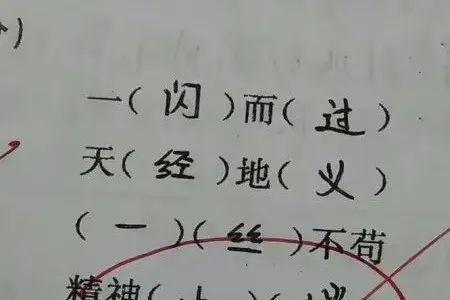 一（闪）而（过）
天（经）地（义）
（一）（丝）不苟
精神（